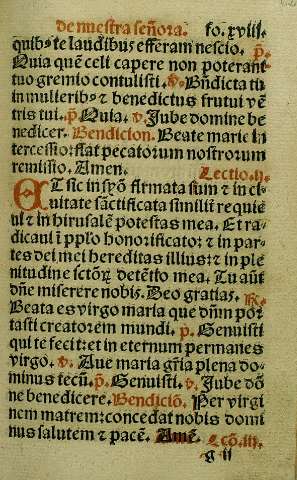 de nuestra señora. fo. xviij.
quibꝰ te laudibus efferam nescio. p̃.
Quia quē celi capere non poterant
tuo gremio contulisti. v. Bn̄dicta tu
in mulieribꝰ ⁊ benedictus frutui vē
tris tui. p̃. Quia. v. Jube domine be
nedicer. Bendicion. Beate marie in
tercessio: flat pecatorum nostrorum
remissio. Amen. Lectio. ij.
ET sic in syō firmata sum ⁊ in ci
uitate sāctificata similit̄ requie
ui ⁊ in hirusalē potestas mea. Et ra
dicaui ī pp̄lo honorificato: ⁊ in par
tes dei mei hereditas illius: ⁊ in ple
nitudine sctōꝝ detētio mea. Tu aūt
dn̄e miserere nobis. Deo gratias. R.
Beata es virgo maria que dn̄m por
tasti creatorem mundi. p̃. Genuisti
qui te fecit: et in eternum permanes
virgo. v. Aue maria gr̄ia plena do
minus tecū. p̃. Genuisti. v. Jube dō
ne benedicere. Bendiciō. Per virgi
nem matrem: concedat nobis domi
nus salutem ⁊ pacē. Amē. Lcō. iij.
g ij